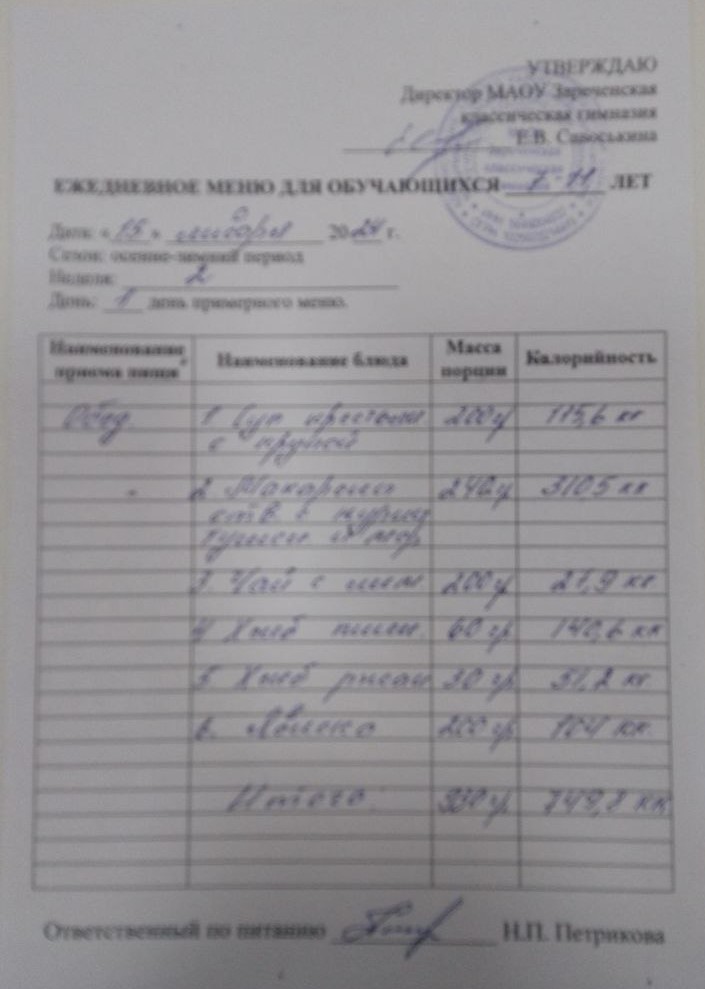 УТВЕРЖДАЮ
Директор МАОУ Зареченская
классическая гимназия
Е.В. Савоськина
ЕЖЕДНЕВНОЕ МЕНЮ ДЛЯ ОБУЧАЮЩИХСЯ 7-11 ЛЕТ
Дата: «15» января 2024 г.
Сезон: осенне-зимний период
Неделя: 2
День: 1 день примерного меню.
Наименование приема пищи Наименование блюда Масса порции Калорийность
Обед. 1 Суп крестьян 200 г 115,6 кк
с крупой
2. Макароны 240 г 310,5 кк
отв. с курицей
тушен
3. Чай с лим. 200 г 27,9 кк
4 Хлеб пшен. 60 гр 140,6 кк
5 Хлеб ржан 30 гр 51,2 кк
6. Яблоко 200 гр 104 кк.
Итого: 930 гр 749,8 кк
Ответственный по питанию Н.П. Петрикова